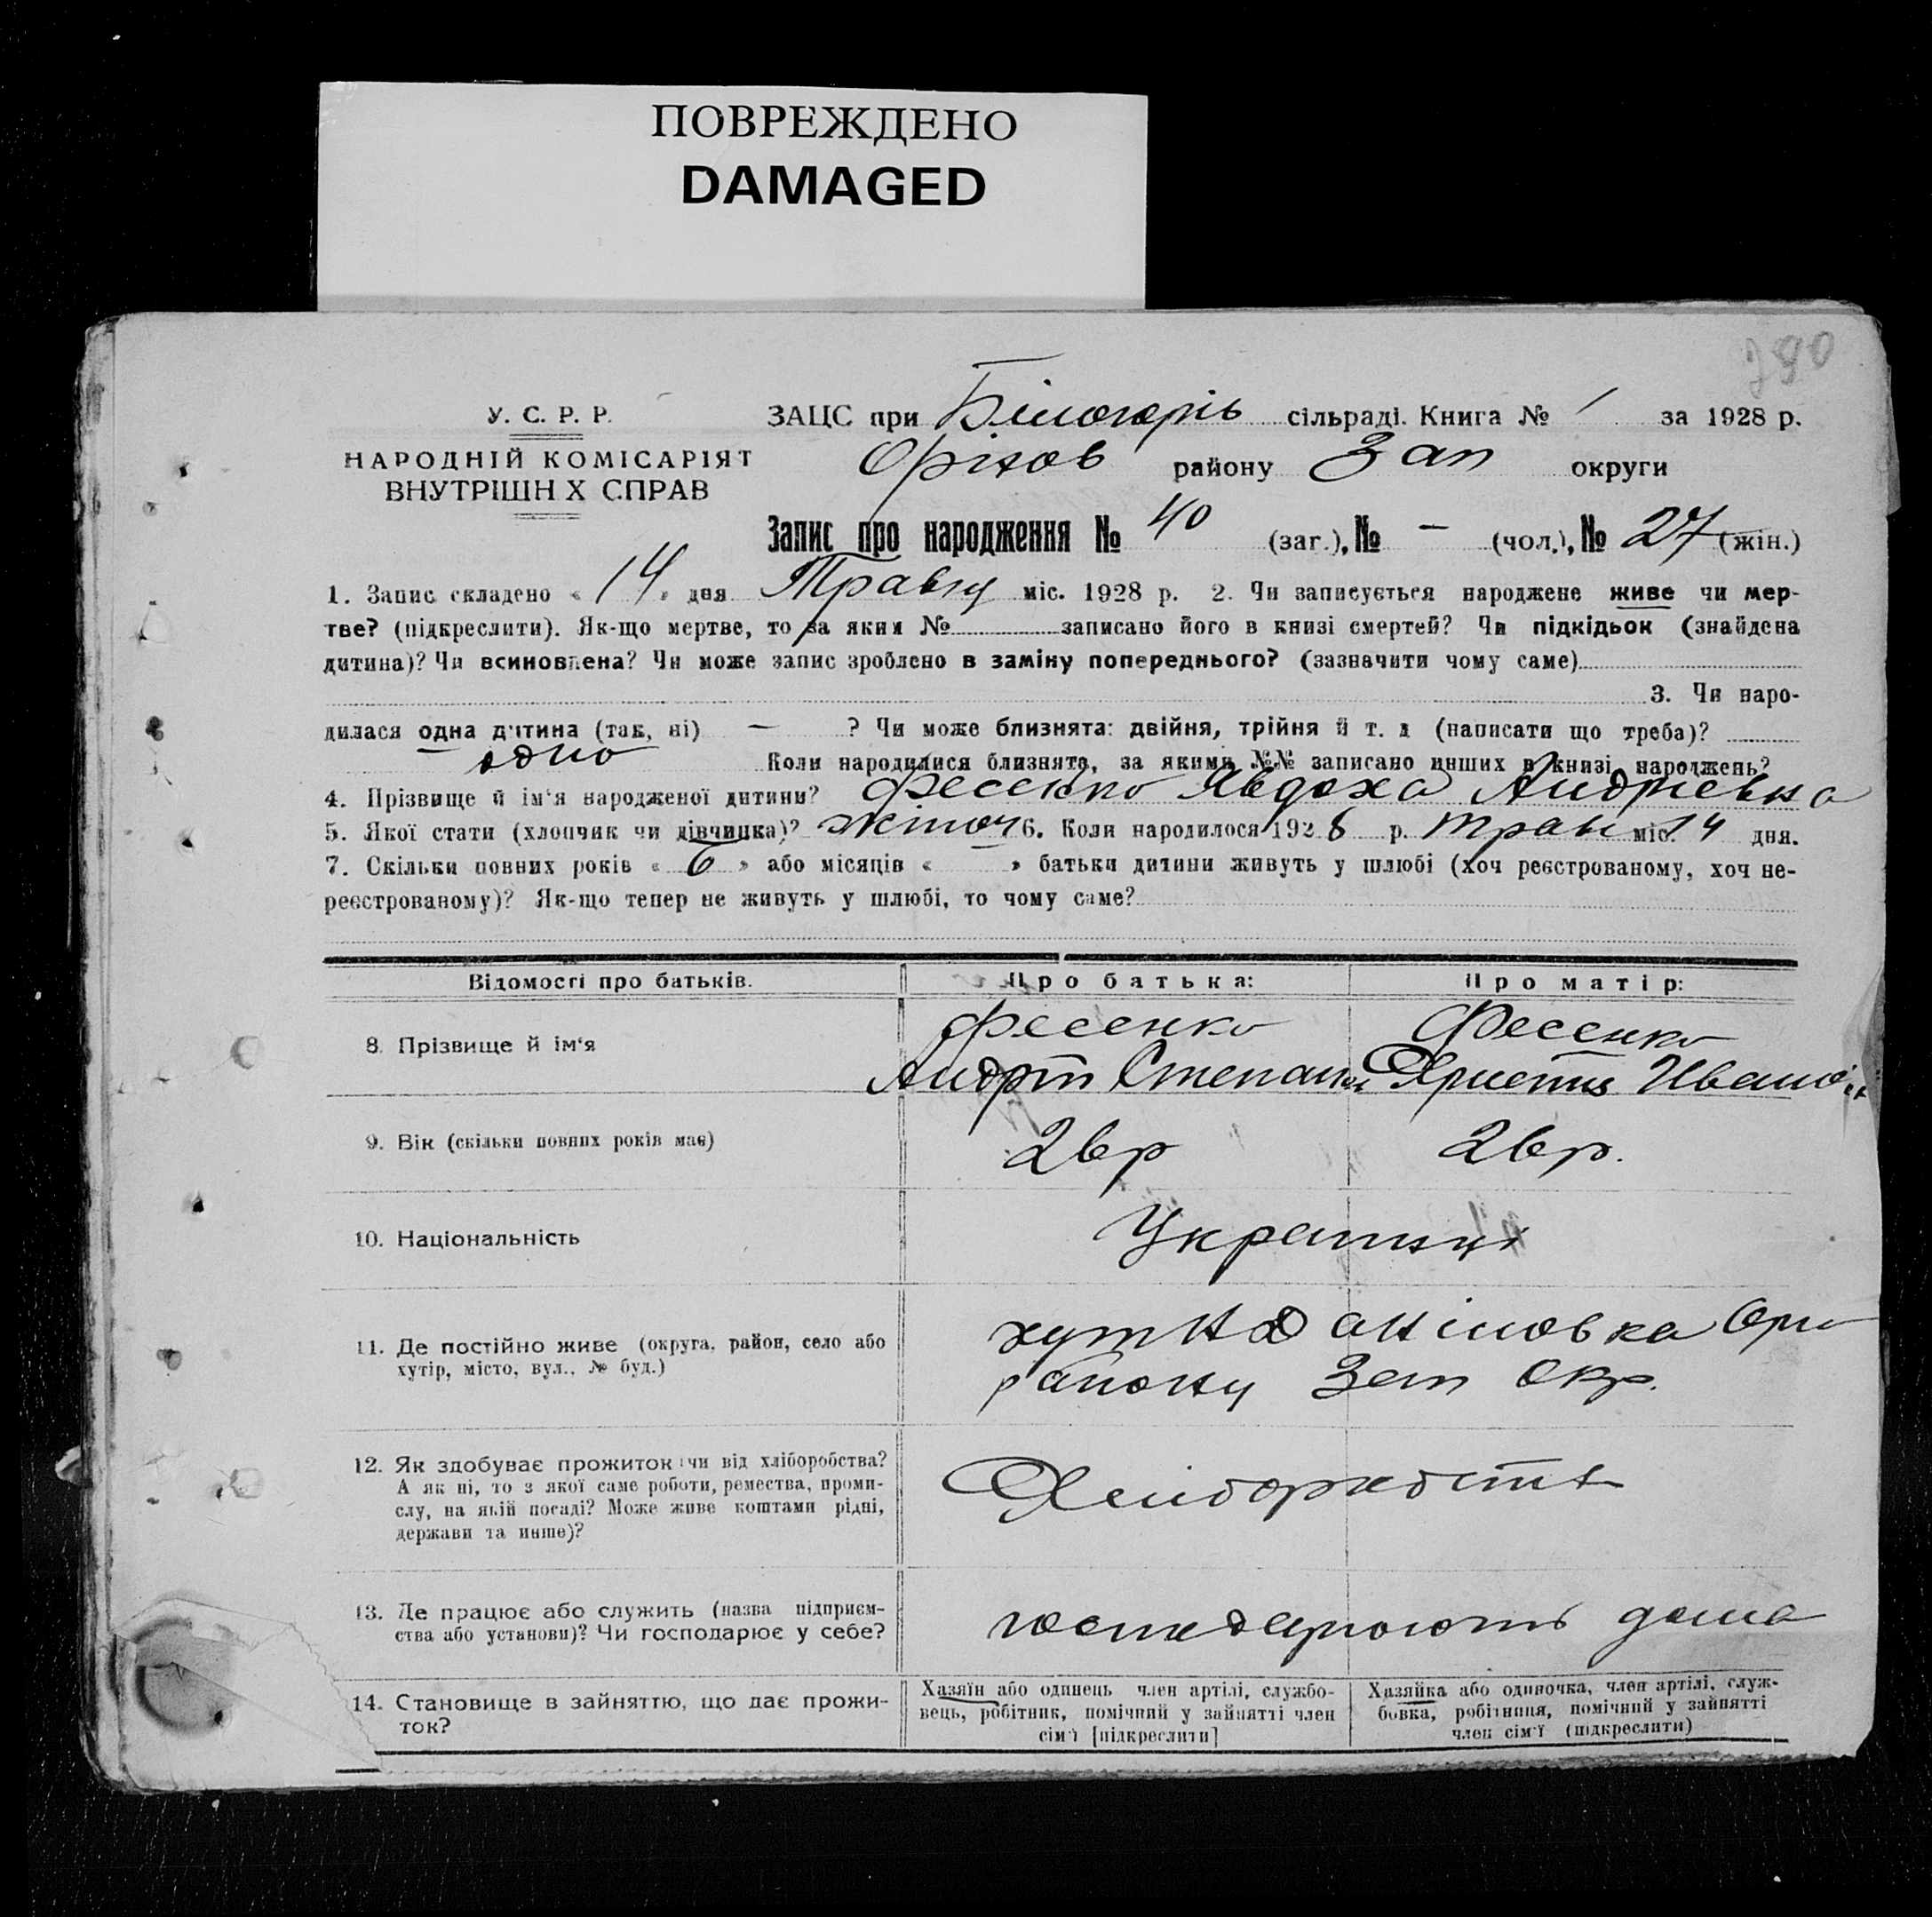 ПОВРЕЖДЕНО
DAMAGED
У. С. Р. Р.
НАРОДНІЙ КОМІСАРІЯТ
ВНУТРІШН Х СПРАВ
ЗАЦС при Білогорів сільраді. Книга № 1 за 1928 р.
Оріхов району Зап округи
Запис про народження № 40 (заг.), № – (чол.), № 27 (жін.)
1. Запис складено « 14 » дня Травня міс. 1928 р. 2. Чи записується народжене живе чи мер-
тве? (підкреслити). Як-що мертве, то за яким № записано його в книзі смертей? Чи підкідьок (знайдена
дитина)? Чи всиновлена? Чи може запис зроблено в заміну попереднього? (зазначити чому саме)
3. Чи наро-
дилася одна дитина (так, ні) – ? Чи може близнята: двійня, трійня й т. д (написати що треба)?
одно Коли народилися близнята, за якими №№ записано инших в книзі народжень?
4. Прізвище й ім'я народженої дитини? Фесенко Явдоха Андріевна
5. Якої стати (хлопчик чи дівчинка)? жіноч 6. Коли народилося 1928 р. Трав міс. 14 дня.
7. Скільки повних років « 6 » або місяців « – » батьки дитини живуть у шлюбі (хоч реєстрованому, хоч не-
реєстрованому)? Як-що тепер не живуть у шлюбі, то чому саме?
Відомості про батьків. Про батька: Про матір:
8. Прізвище й ім'я Фесенко Фесенко
Андрій Степан Христя Иванов
9. Вік (скільки повних років має) 26р 26р.
10. Національність Українці
11. Де постійно живе (округа, район, село або
хутір, місто, вул., № буд.)
хут Ново Даніловка Оріх
району Зап окр.
12. Як здобуває прожиток: чи від хліборобства?
А як ні, то з якої саме роботи, ремества, проми-
слу, на якій посаді? Може живе коштами рідні,
держави та инше)?
Хліборобств
13. Де працює або служить (назва підприєм-
ства або установи)? Чи господарює у себе?
господарюють дома
14. Становище в зайняттю, що дає прожи-
ток?
Хазяїн або одинець член артілі, службо-
вець, робітник, помічний у зайнятті член
сім'ї [підкреслити]
Хазяйка або одиночка, член артілі, служ-
бовка, робітниця, помічний у зайнятті
член сім'ї (підкреслити)